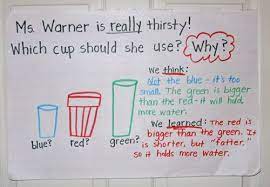 Ms. Warner is really thirsty!
Which cup should she use? Why?
We think:
Not the blue - it's too
small. The green is bigger
than the red - it will hold
more water.
We learned: The red is
bigger than the green. It
is shorter, but "fatter,"
so it holds more water.
blue? red? green?